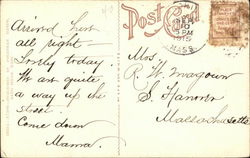 Post Card
MASS.
Arrived here
all right.
Lovely today.
We are quite
a way up the
street.
Come down
Mama.
Mrs.
R. W. Magoun
S. Hanover
Massachusetts